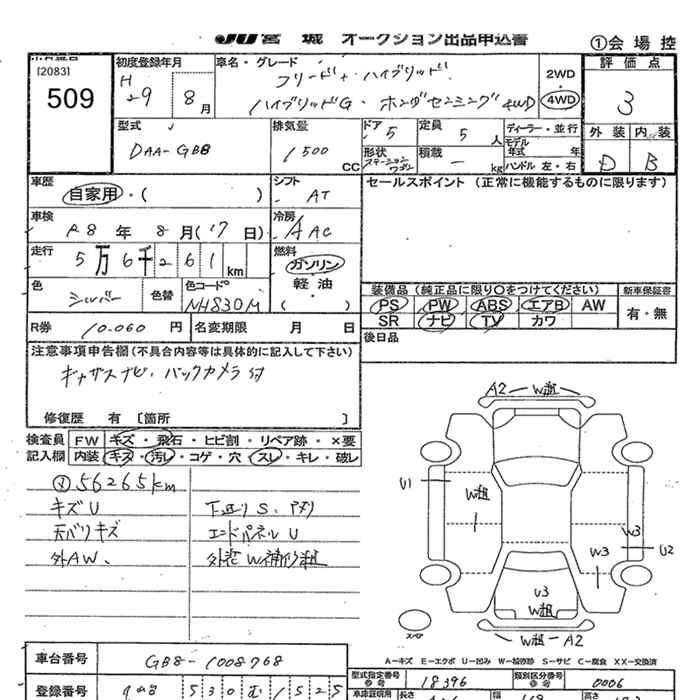 JU 宮 城 オークション出品申込書
①会 場 控
[2083]
509
初度登録年月
H 29 8月
車名・グレード
フリード+ハイブリッド
ハイブリッドG・ホンダセンシング4WD
2WD
4WD
評 価 点
3
外 装 内 装
D B
型式
DAA-GB8
排気量
1500 CC
ドア 5
定員 5 人
形状 ステーションワゴン
積載 ー kg
ディーラー・並行
モデル年式 年
ハンドル 左・右
車歴
自家用・( )
シフト
AT
セールスポイント (正常に機能するものに限ります)
車検
R8 年 8 月(17日)
冷房
AAC
走行
5万6千261 km
燃料
ガソリン
軽 油
( )
色
シルバー
色替
色コード
NH830M
装備品 (純正品に限り○をつけてください)
新車保証書
PS PW ABS エアB AW
SR ナビ TV カワ
有・無
R券 10.060 円
名変期限 月 日
後日品
注意事項申告欄 (不具合内容等は具体的に記入して下さい)
ギャザズナビ・バックカメラ付
修復歴 有 [箇所 ]
検査員 記入欄
FW キズ・飛石・ヒビ割・リペア跡・×要
内装 キズ・汚レ・コゲ・穴・スレ・キレ・破レ
56265km
キズU
天バリキズ
外AW、
下廻りS、
エンドパネルU
外装W補修粗
A2 W粗
U1
W粗
W3
U2
W3
U3
W粗
W粗 A2
スペア
A−キズ E−エクボ U−凹み W−補修跡 S−サビ C−腐食 XX−交換済
車台番号
GB8-1008768
型式指定番号
18396
類別区分番号
0006
登録番号
530
1525
長さ
幅
高さ